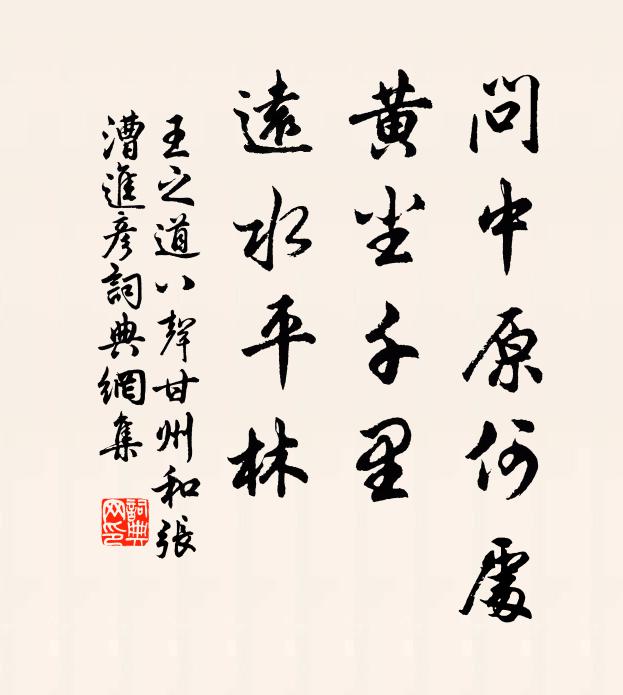 問中原何處
黄尘千里
遠水平林
王之道八聲甘州和張
漕進彦詞典網集
詞典
网印